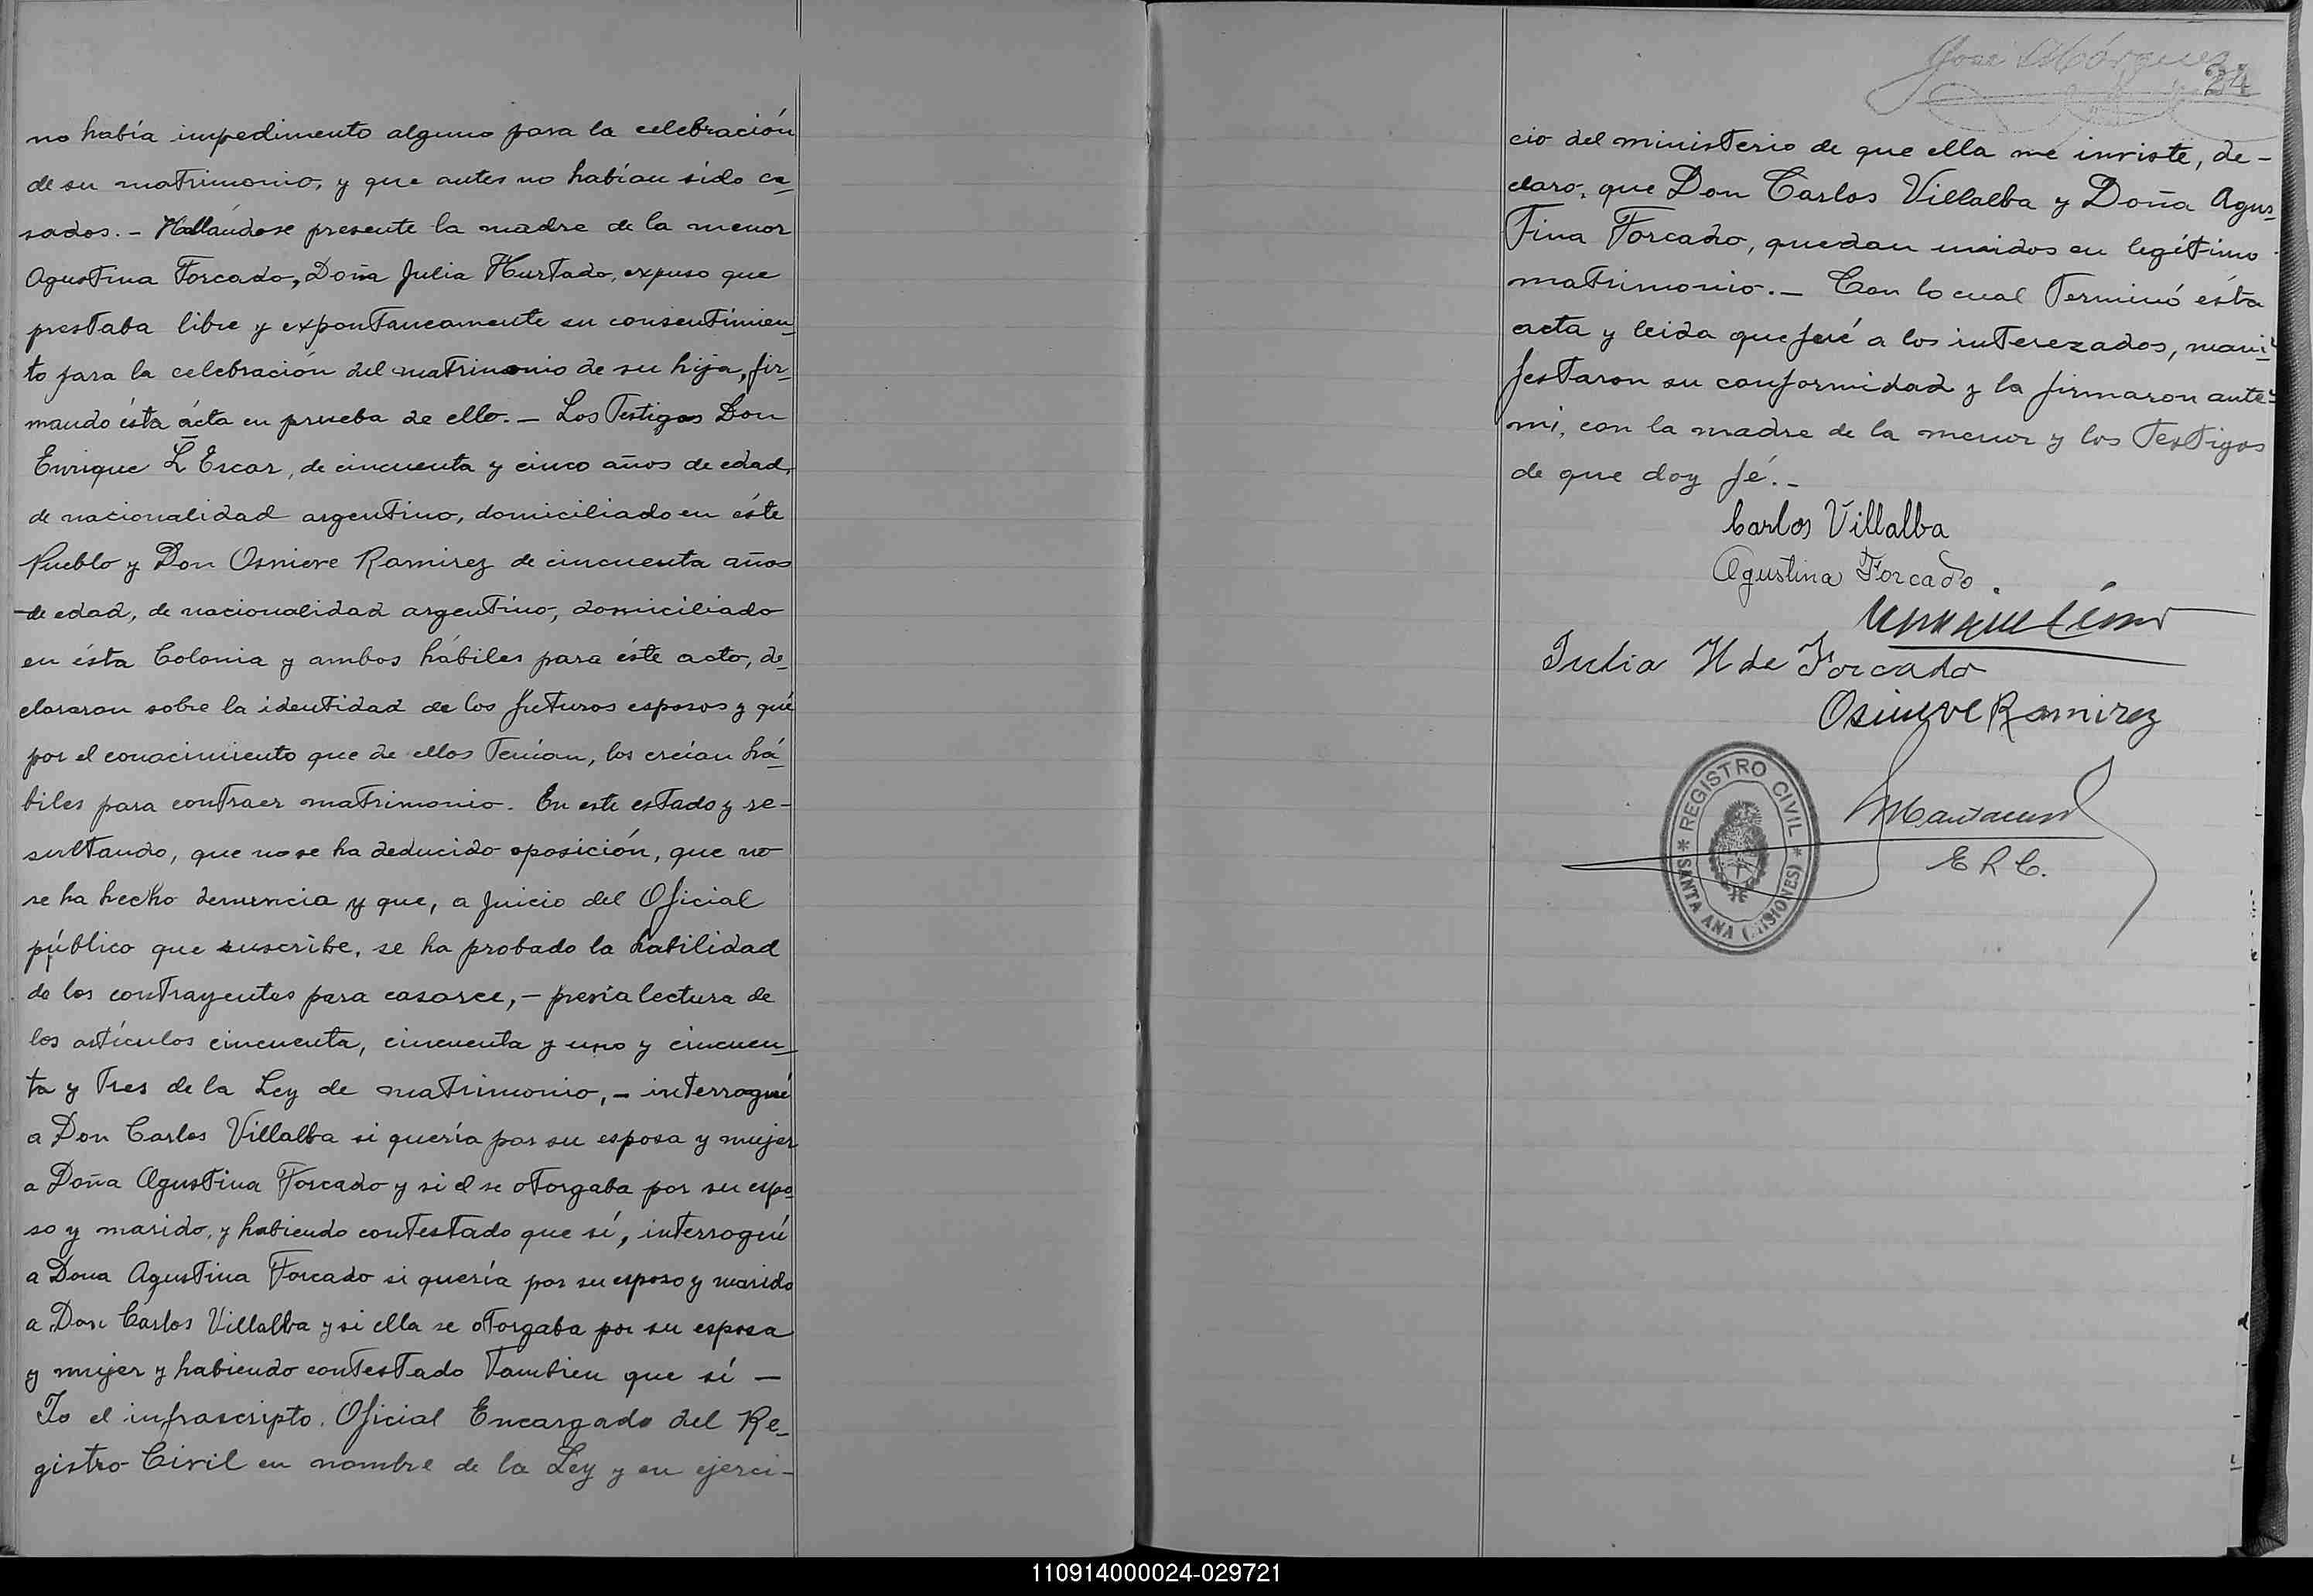 no había impedimento alguno para la celebración
de su matrimonio, y que antes no habían sido ca-
sados. - Hallándose presente la madre de la menor
Agustina Forcado, Doña Julia Hurtado, expuso que
prestaba libre y expontaneamente su consentimien-
to para la celebración del matrimonio de su hija, fir-
mando ésta ácta en prueba de ello. - Los Testigos Don
Enrique L Escar, de cincuenta y cinco años de edad,
de nacionalidad argentino, domiciliado en éste
Pueblo y Don Osnieve Ramirez de cincuenta años
de edad, de nacionalidad argentino, domiciliado
en ésta Colonia y ambos hábiles para éste acto, de-
clararon sobre la identidad de los futuros esposos y qué
por el conacimiento que de ellos Tenían, los creían há-
biles para contraer matrimonio. En este estado y re-
sultando, que no se ha deducido oposición, que no
se ha hecho denuncia y que, a juicio del Oficial
público que suscribe, se ha probado la habilidad
de los contrayentes para casarce, - previa lectura de
los artículos cincuenta, cincuenta y uno y cincuen-
ta y Tres de la Ley de matrimonio, - interrogué
a Don Carlos Villalba si quería por su esposa y mujer
a Doña Agustina Forcado y si el se otorgaba por su espo-
so y marido, y habiendo contestado que sí, interrogué
a Dona Agustina Forcado si quería por su esposo y marido
a Don Carlos Villalba y si ella se otorgaba por su esposa
y mujer y habiendo contestado Tambien que sí —
Yo el infrascripto, Oficial Encargado del Re-
gistro Civil en nombre de la Ley y en ejerci-
José Márquez
24
cio del ministerio de que ella me inviste, de-
claro, que Don Carlos Villalba y Doña Agus-
Tina Forcado, quedan unidos en legítimo
matrimonio. - Con lo cual Terminó ésta
acta y leida que fué a los interezados, mani-
festaron su conformidad y la firmaron ante-
mi, con la madre de la menor y los Testigos
de que doy fé. -
Carlos Villalba
Agustina Forcado.
Julia H de Forcado
Osnieve Ramirez
* REGISTRO CIVIL *
SANTA ANA (MISIONES)
E R C.
110914000024-029721